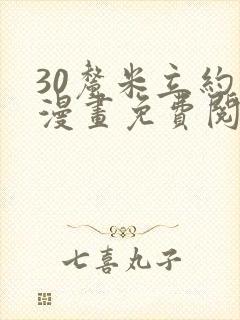 30釐米立約
漫畫免費閱
七喜丸子